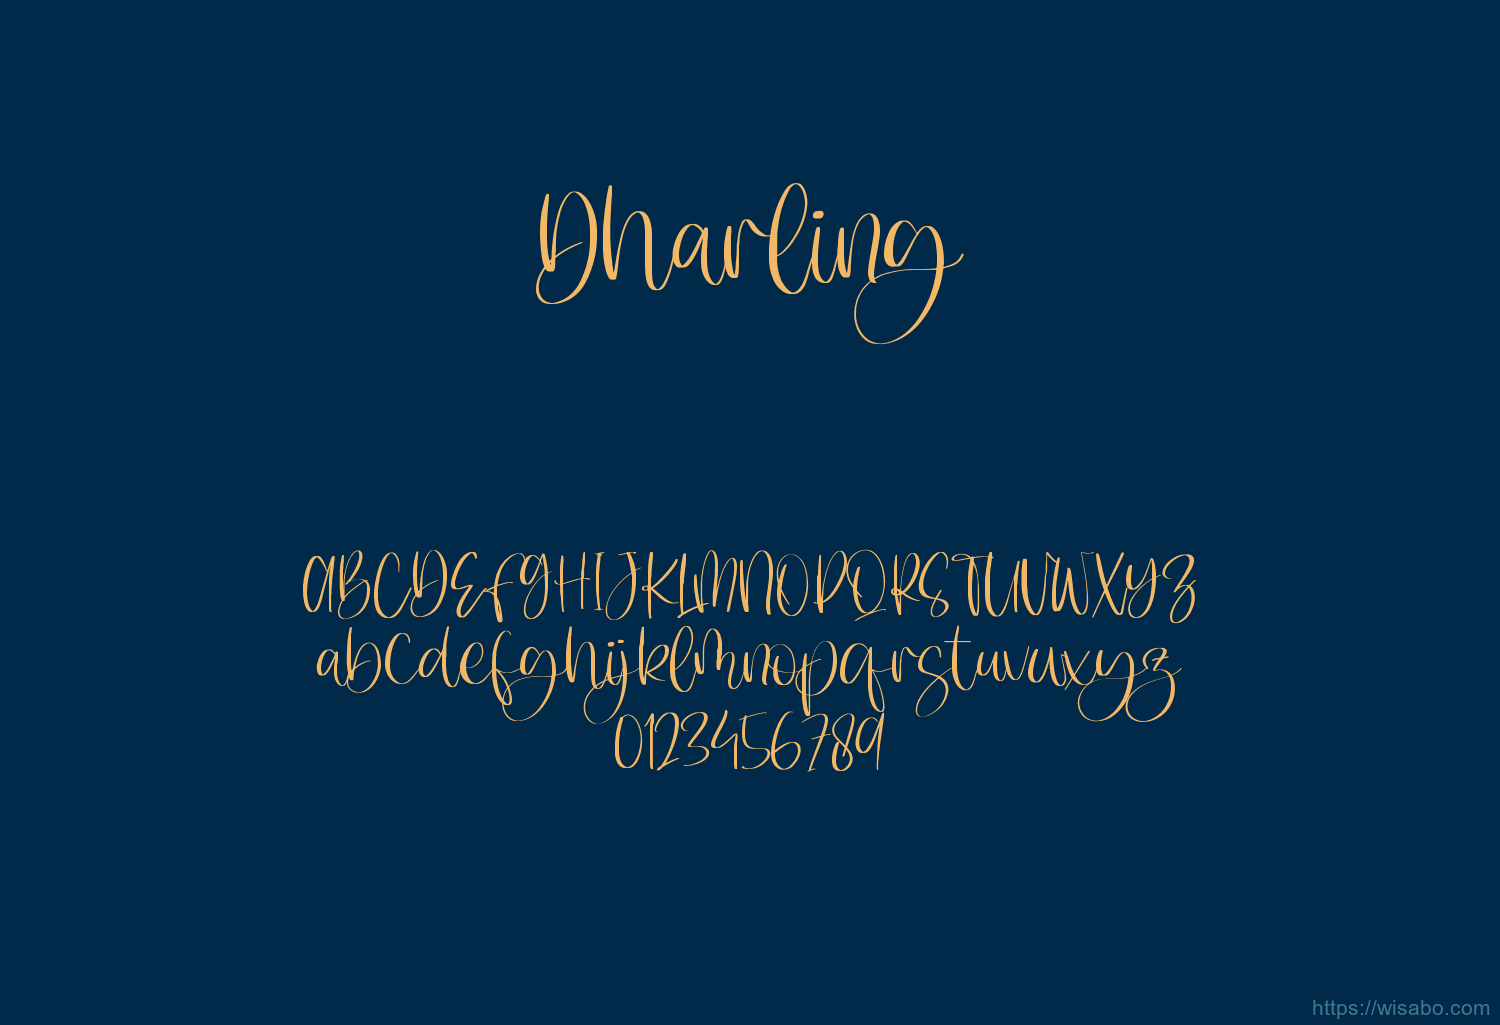 Dharling
ABCDEFGHIJKLMNOPQRSTUVWXYZ
abcdefghijklmnopqrstuvwxyz
0123456789
https://wisabo.com